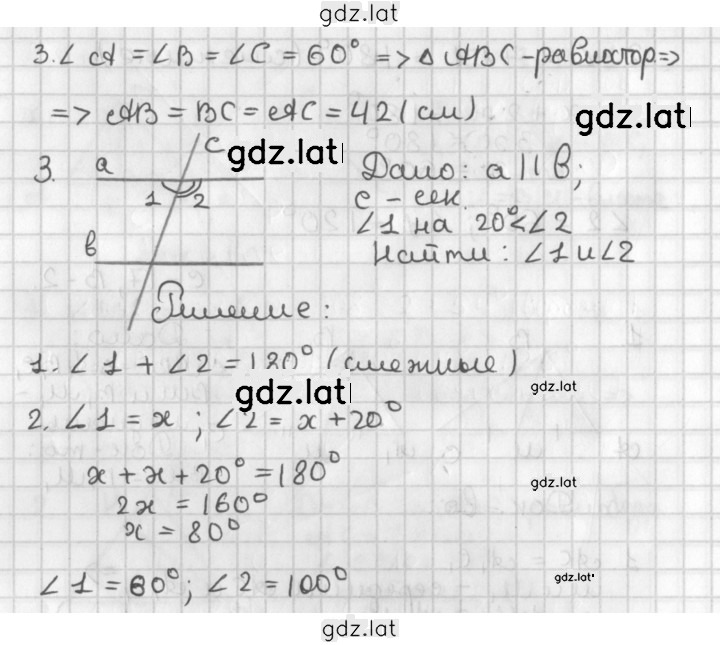 gdz.lat
3. ∠A = ∠B = ∠C = 60° => △ABC - равностор =>
=> AB = BC = AC = 42 (см)
gdz.lat
3. a c 1 2 b
Дано: a || b;
c - сек.
∠1 на 20° < ∠2
Найти: ∠1 и ∠2
Решение:
1. ∠1 + ∠2 = 180° (смежные)
gdz.lat
gdz.lat
2. ∠1 = x; ∠2 = x + 20°
x + x + 20° = 180°
gdz.lat
2x = 160°
x = 80°
∠1 = 80°; ∠2 = 100°
gdz.lat
gdz.lat